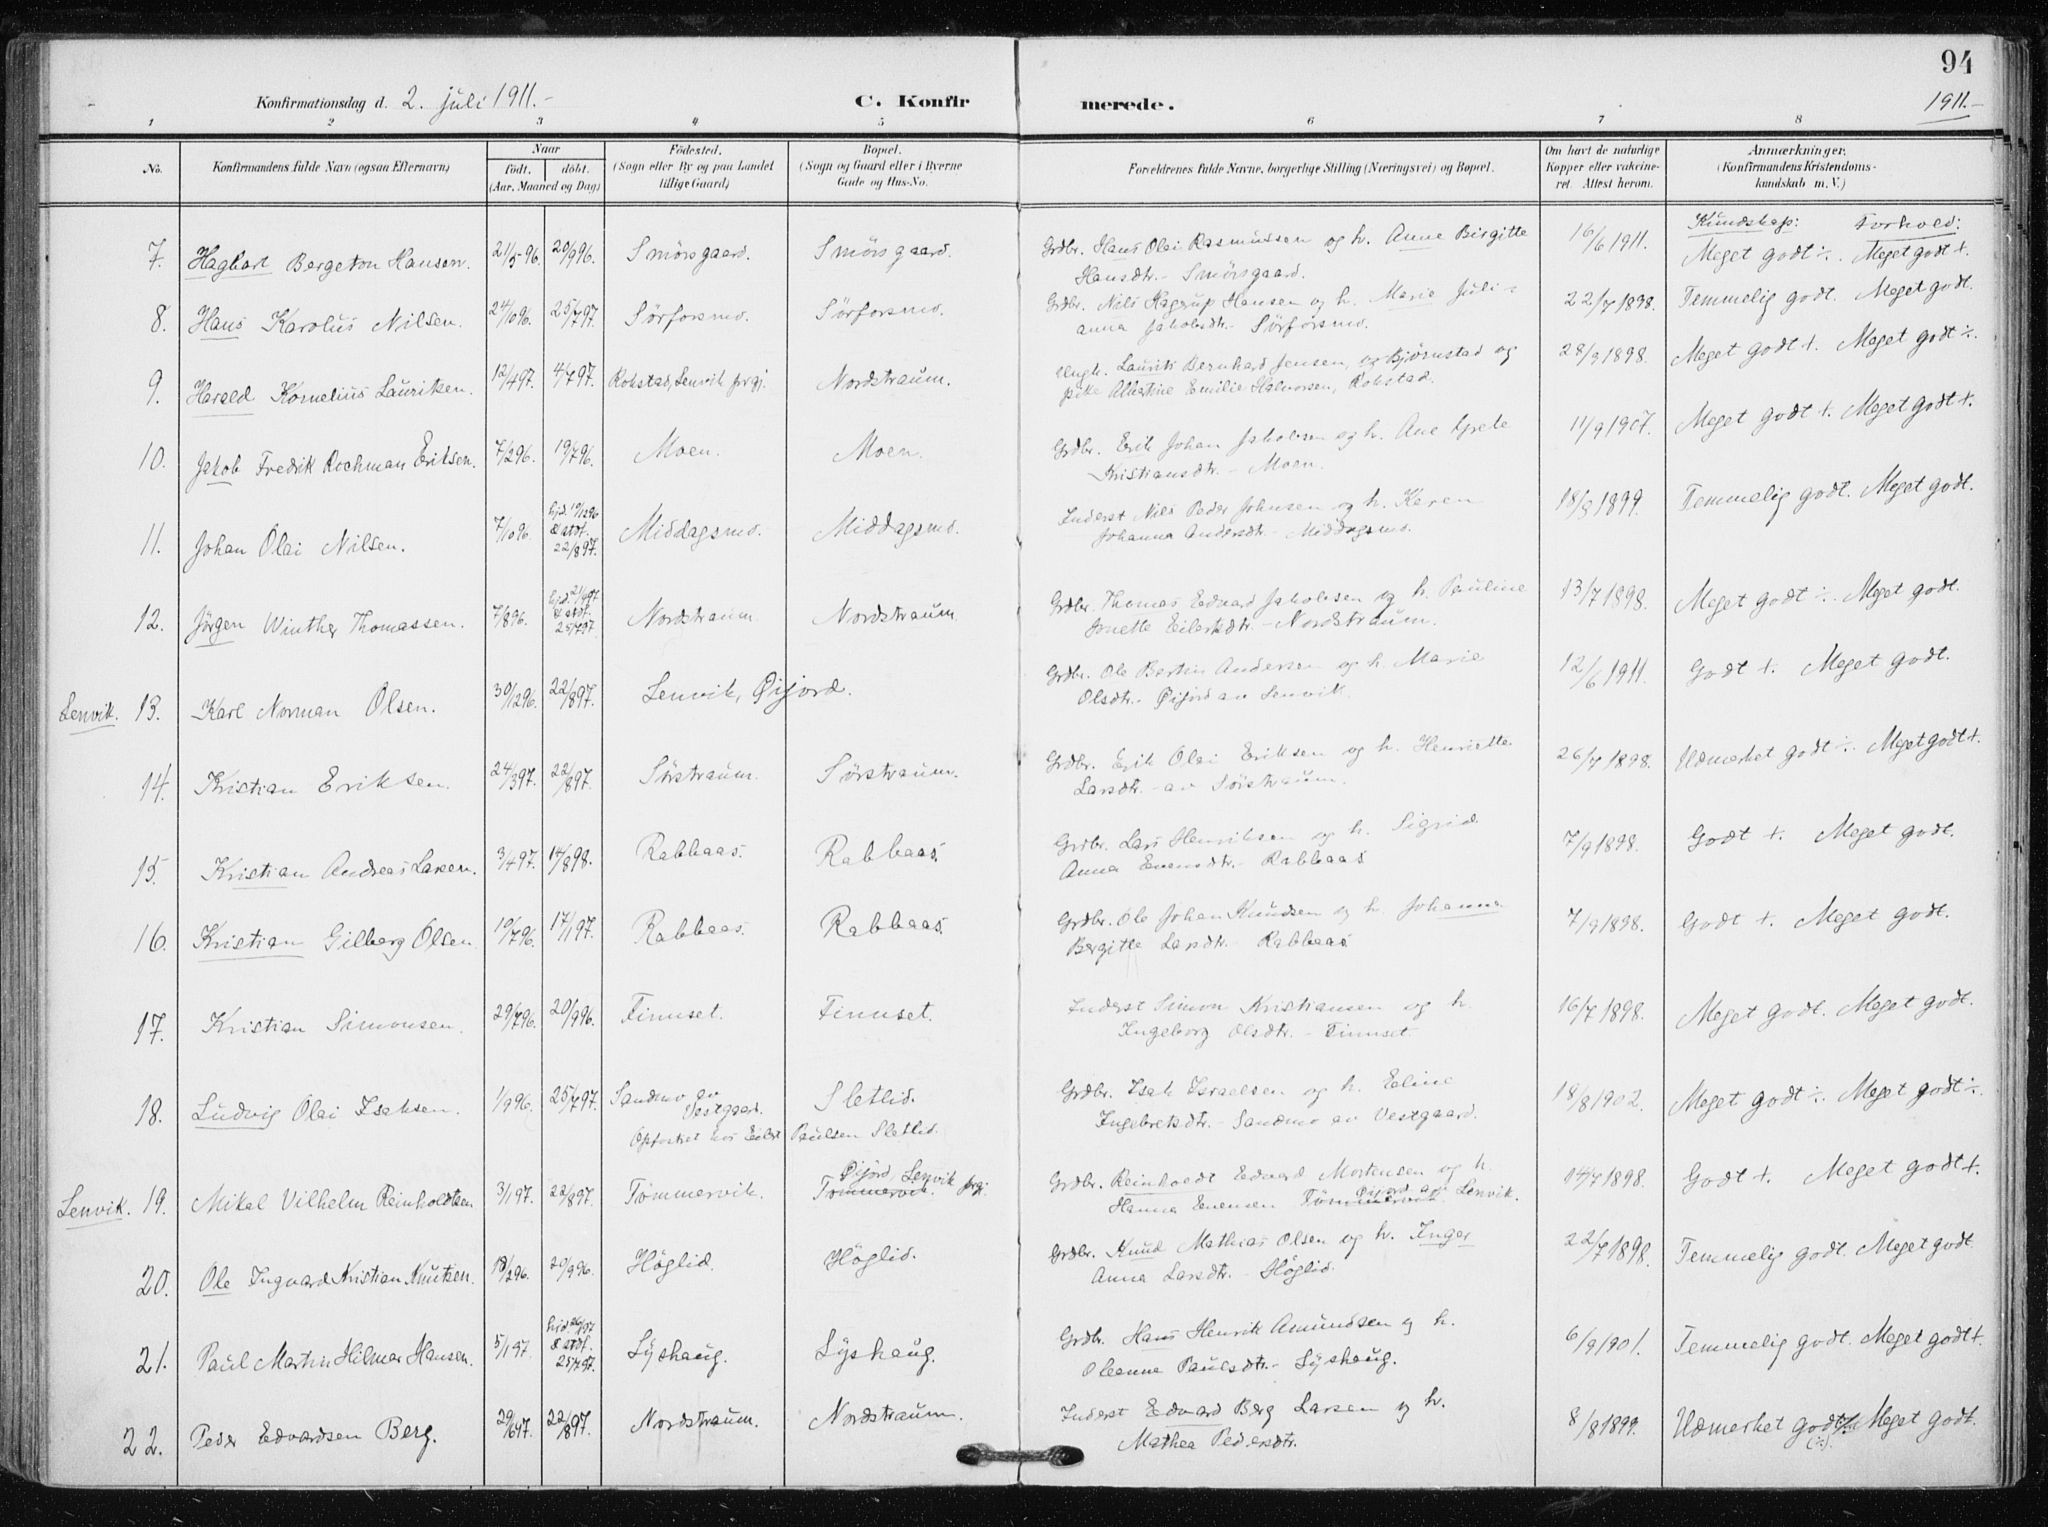 94
Konfirmationsdag d. 2. juli 1911.- C. Konfirmerede. 1911.-
1 2 3 4 5 6 7 8
No. Konfirmandens fulde Navn (ogsaa Efternavn) Naar født. døbt. (Aar, Maaned og Dag) Fødested. (Sogn eller By og paa Landet tillige Gaard) Bopæl. (Sogn og Gaard eller i Byerne Gade og Hus-No. Forældrenes fulde Navne, borgerlige Stilling (Næringsvei) og Bopæl. Om havt de naturlige Kopper eller vakcineret. Attest herom. Anmærkninger, (Konfirmandens Kristendomskundskab m. V.)
Kundskap: Forhold:
7. Hagbart Bergeton Hansen. 21/5 96. 20/9 96. Smörsgaard. Smörsgaard. Grdbr. Hans Olai Rasmussen og h. Anne Birgitte 16/6 1911. Meget godt ÷. Meget godt +.
Hansdtr.- Smörsgaard.
8. Hans Karolus Nilsen. 24/10 96. 25/7 97. Sörforsmo. Sörforsmo. Grdbr. Nils Hagrup Hansen og h. Marie Juli- 22/7 1898. Temmelig godt. Meget godt.
anna Jakobsdtr.- Sörforsmo.
9. Harald Kornelius Lauritsen. 12/4 97. 4/7 97. Rokstad, Lenvik prgj. Nordstraum. Ungk. Laurits Bernhard Jensen, Bjørnstad og 28/9 1898. Meget godt +. Meget godt ÷.
pike Albertine Emilie Halvorsen, Rokstad.
10. Jakob Fredrik Rochman Eriksen. 7/2 96. 19/7 96. Moen. Moen. Grdbr. Erik Johan Jakobsen og h. Ane Grete 11/9 1907. Meget godt +. Meget godt +.
Kristiansdtr.- Moen.
11. Johan Olai Nilsen. 7/10 96. hjd. 19/12 96 & stdf. 22/8 97. Middagsmo. Middagsmo. Inderst Nils Peder Johnsen og h. Karen 18/8 1899. Temmelig godt. Meget godt.
Johanna Andersdtr.- Middagsmo.
12. Jörgen Winther Thomassen. 7/8 96. hjd. & stdf. 25/7 97. Nordstraum. Nordstraum. Grdbr. Thomas Edvard Jakobsen og h. Pauline 13/7 1898. Meget godt ÷. Meget godt.
Jonette Eilertsdtr.- Nordstraum.
Lenvik. 13. Karl Norman Olsen. 30/12 96. 22/8 97. Lenvik, Øijord. Grdbr. Ole Bertin Andersen og h. Marie 12/6 1911. Godt +. Meget godt.
Olsdtr.- Øijord av Lenvik.
14. Kristian Eriksen. 24/3 97. 22/8 97. Sörstraum. Sörstraum. Grdbr. Erik Olai Eriksen og h. Henriette 26/7 1898. Udmerket godt ÷. Meget godt +.
Larsdtr.- av Sörstraum.
15. Kristian Andreas Larsen. 3/4 97. 14/8 98. Rabbaas. Rabbaas. Grdbr. Lars Henriksen og h. Sigrid 7/9 1898. Godt +. Meget godt.
Anna Evensdtr.- Rabbaas
16. Kristian Gilberg Olsen. 19/7 96. 17/1 97. Rabbaas. Rabbaas. Grdbr. Ole Johan Knudsen og h. Johanna 7/9 1898. Godt +. Meget godt.
Bergitte Larsdtr. Rabbaas
17. Kristian Simonsen. 29/7 96. 20/9 96. Finset. Finset. Inderst Simon Kristiansen og h. 16/7 1898. Meget godt. Meget godt.
Ingeborg Olsdtr.- Finset.
18. Ludvig Olai Isaksen. 1/9 96. 25/7 97. Sandmo av Vestgaard. Sletlid. Grdbr. Isak Israelsen og h. Eline 18/8 1902. Meget godt ÷. Meget godt ÷.
Opfostret hos Eilert Paulsen Sletlid. Ingebretsdtr.- Sandmo av Vestgaard.
Øijord, Lenvik prgj.
Lenvik. 19. Mikal Vilhelm Reinholdtsen 3/1 97. 22/8 97. Tömmervik. Tömmervik. Grdbr. Reinholdt Edvard Mortensen og h. 14/7 1898. Godt +. Meget godt +.
Hanna Evensen Tömmervik. Øijord av Lenvik.
20. Ole Ingvard Kristian Knutsen. 18/2 96. 20/9 96. Höglid. Höglid. Grdbr. Knud Mathias Olsen og h. Inger 22/7 1898. Temmelig godt. Meget godt.
Anna Larsdtr.- Höglid.
21. Paul Martin Hilmar Hansen. 5/1 97. hjd. & stdf. 25/7 97. Lyshaug. Lyshaug. Grdbr. Hans Henrik Amundsen og h. 6/9 1901. Temmelig godt. Meget godt +.
Oleanne Paulsdtr.- Lyshaug.
22. Peder Edvardsen Berg. 29/6 97. 22/8 97. Nordstraum. Nordstraum. Inderst Edvard Berg Larsen og h. 8/8 1899. Udmerket godt (÷). Meget godt.
Mathea Pedersdtr.